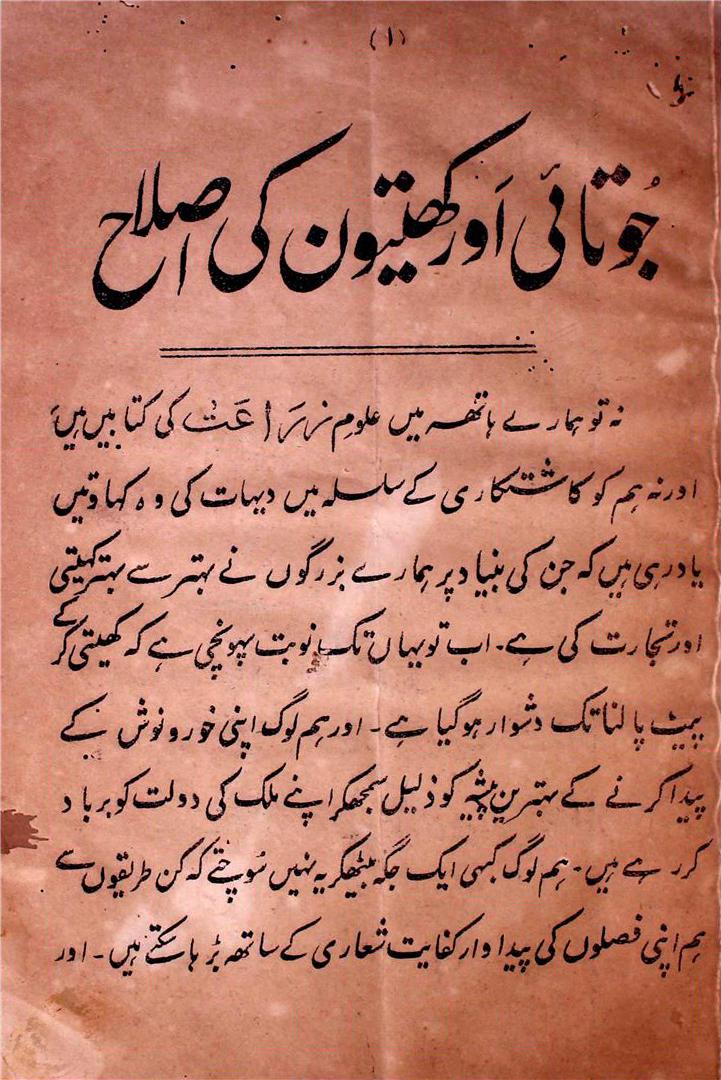 (۱)
جُوتائی اَور کھیتیون کی اصلاح
نہ تو ہمارے ہاتھہ میں علومِ زرَاعَت کی کتابیں ہیں
اور نہ ہم کو کاشتکاری کے سلسلہ میں دیہات کی وہ کہاوتیں
یاد رہی ہیں کہ جن کی بنیاد پر ہمارے بزرگوں نے بہتر سے بہتر کھیتی
اور تجارت کی ہے۔ اب تو یہاں تک نوبت پہونچی ہے کہ کھیتی کرکے
پیٹ پالنا تک دشوار ہوگیا ہے۔ اور ہم لوگ اپنی خورونوش کے
پیدا کرنے کے بہترین پیشہ کو ذلیل سمجھکر اپنے ملک کی دولت کو برباد
کررہے ہیں۔ ہم لوگ کبھی ایک جگہ بیٹھکر یہ نہیں سُوچتے کہ کن طریقوں سے
ہم اپنی فصلوں کی پیداوار کفایت شعاری کے ساتھہ بڑہا سکتے ہیں۔ اور